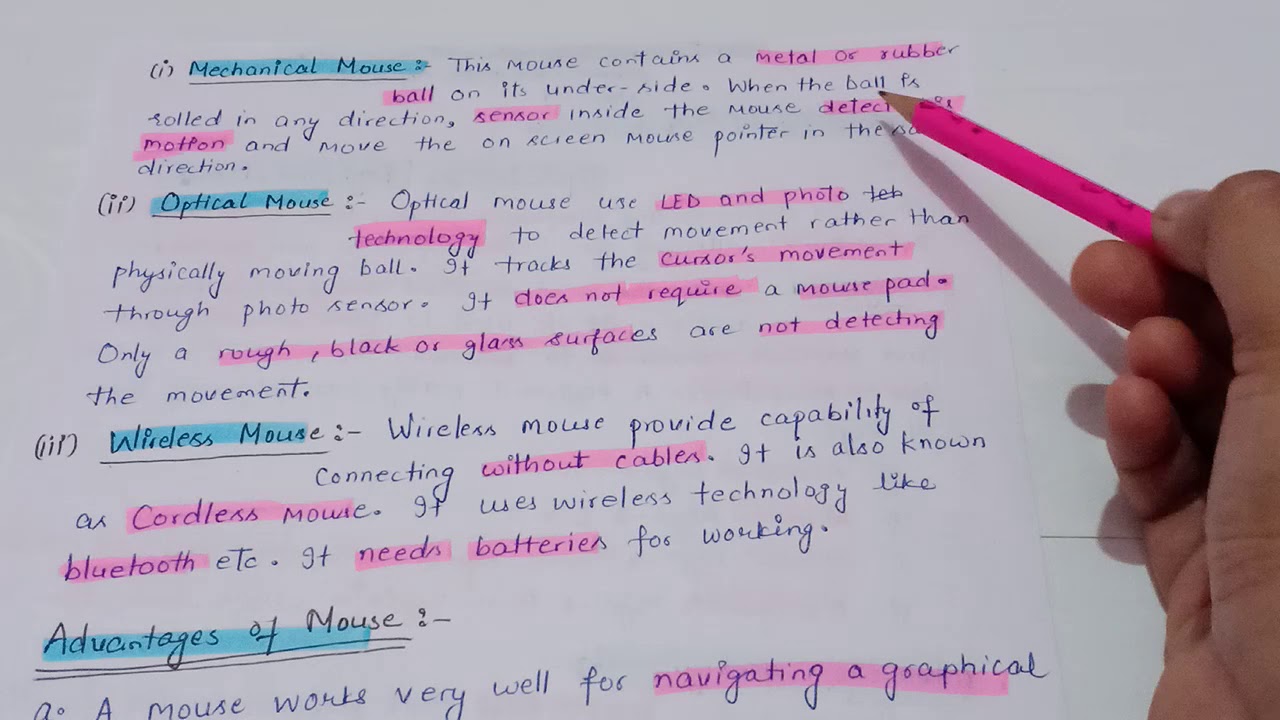 (i) Mechanical Mouse :- This mouse contains a metal or rubber
ball on its under-side. When the ball is
rolled in any direction, sensor inside the mouse
motion and move the on screen mouse pointer in the
direction.
(ii) Optical Mouse :- Optical mouse use LED and photo
technology to detect movement rather than
physically moving ball. It tracks the cursor's movement
through photo sensor. It does not require a mouse pad.
Only a rough, black or glass surfaces are not detecting
the movement.
(iii) Wireless Mouse :- Wireless mouse provide capability of
connecting without cables. It is also known
as Cordless mouse. It uses wireless technology like
bluetooth etc. It needs batteries for working.
Advantages of Mouse :-
a. A mouse works very well for navigating a graphical